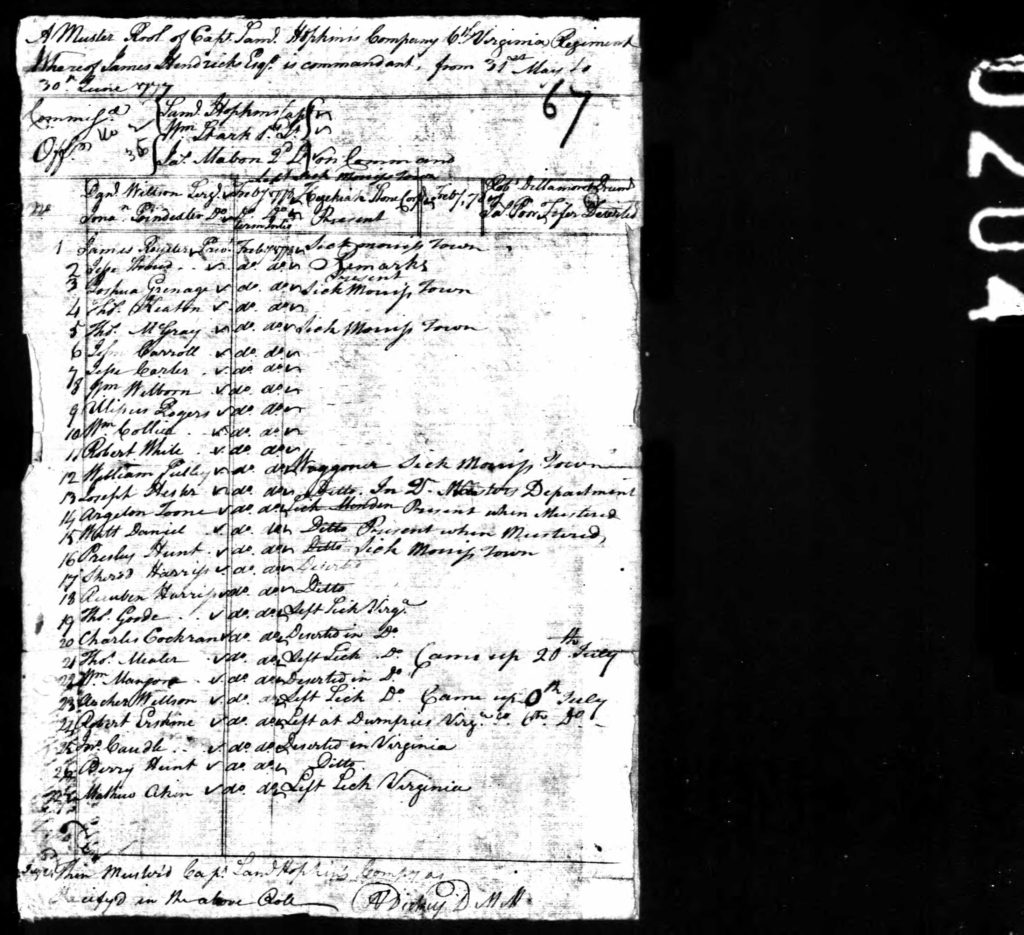 A Muster Rool of Capt. Saml. Hopkins Company 6th Virginia Regiment
Whereof James Hendricks Esqr. is commandant, from 31st May to
30th June 1777
67
Commisd.
Offrs.
Saml. Hopkins Capt
Wm. Stark 1st Lt.
Jas. Mabon 2d Lt. on Command
Left Sick Morriss Town
Willson Sergt. Feby. Hezekiah Stone Corpl. Feby. Robt. Dellamore Drum
Jona. Poindexter Do. Do. Present Jas. Poor Fifer Deserted
No
1 James Royster Priv. Feby. Sick morriss Town
2 Jesse do. do. Remarks
Present
3 Joshua Grenage do. do. Sick Morriss Town
4 Thos. Heaton do. do.
5 Thos. McGray do. do. Sick Morriss Town
6 Carroll do. do.
7 Jesse Carter do. do.
8 Wm Welborn do. do.
9 Ulisus Rogers do. do.
10 Wm Collier do. do.
11 Robert White do. do.
12 William Pulley do. do. Waggoner Sick Morriss Town
13 Joseph Hester do. do. Ditto. In Q. Masters Department
14 Argelon Toone do. do. Sick Present when Mustered
15 Watt Daniel do. do. Ditto Present when Mustered,
16 Presley Hunt do. do. Ditto Sick Morriss Town
17 Sherod Harriss do. do. Deserted
18 Reuben Harriss do. do. Ditto
19 Thos. Goode do. do. Left Sick Virga.
20 Charles Cockran do. do. Deserted in Do
21 Thos. Mealer do. do. Left Sick Do. Came up 20th July
22 Wm. Mangore do. do. Deserted in Do
23 Archer Willson do. do. Left Sick Do. Came up 0th July
24 Robert Erskine do. do. Left at Dumfries Virga. 6th Do
25 Jno. Caudle do. do. Deserted in Virginia
26 Berry Hunt do. do. Ditto
27 Mathew Akin do. do. Left Sick Virginia
Then Muster'd Capt Saml Hopkins Compy as
Specify'd in the above Role
A Dickey D M M
0204